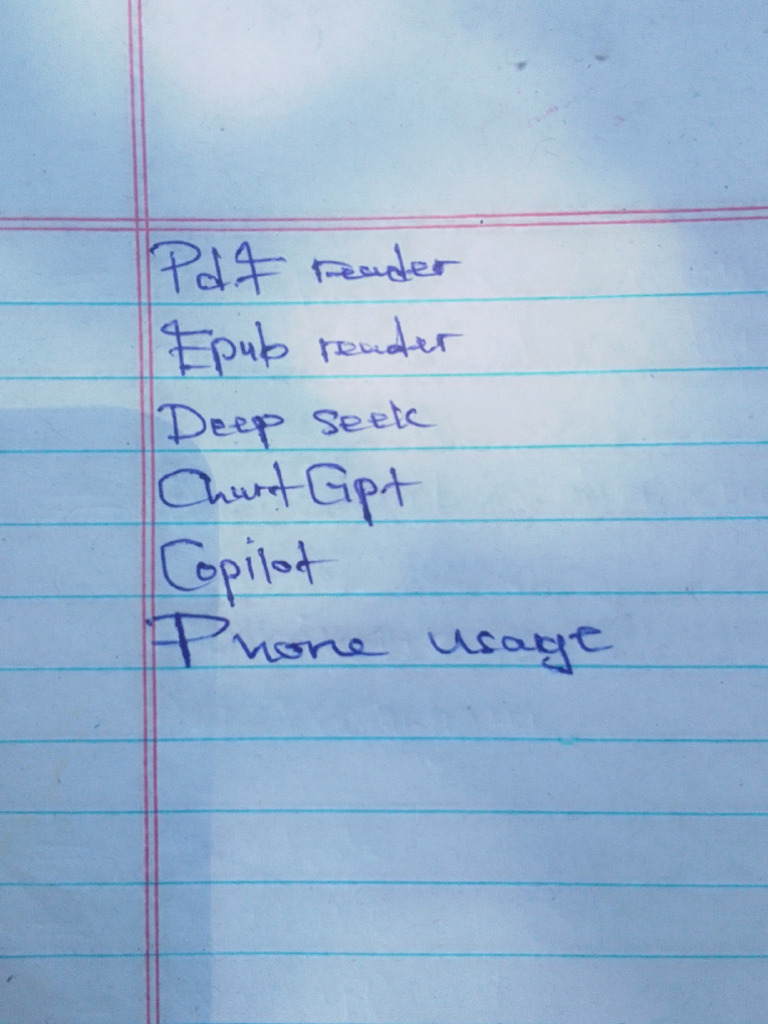 Pdf reader
Epub reader
Deep seek
Chart Gpt
Copilot
Phone usage